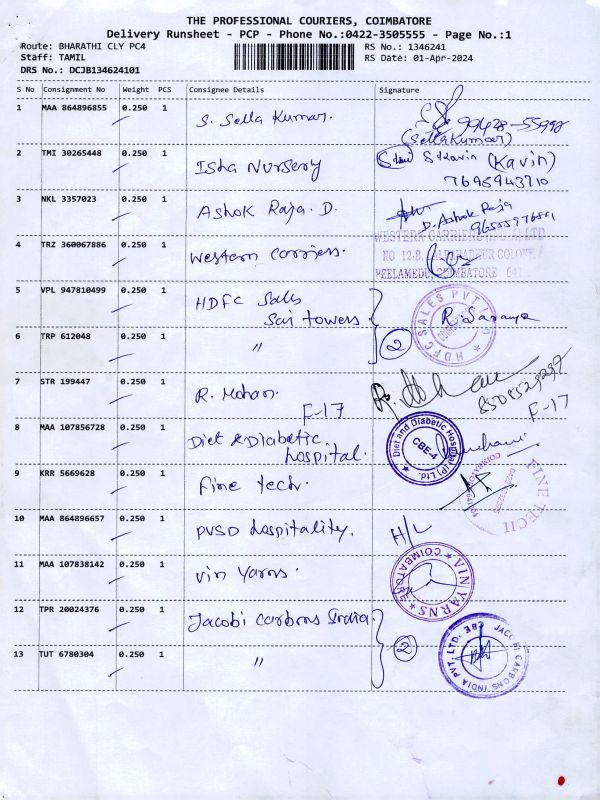 THE PROFESSIONAL COURIERS, COIMBATORE
Delivery Runsheet - PCP - Phone No.:0422-3505555 - Page No.:1
Route: BHARATHI CLY PC4
RS No.: 1346241
Staff: TAMIL
RS Date: 01-Apr-2024
DRS No.: DCJB134624101
S No Consignment No Weight PCS Consignee Details Signature
1 MAA 864896855 0.250 1 S. Sella Kumar. 99428-55998
(Sella Kumar)
2 TMI 30265448 0.250 1 Isha Nursery S Kavin (Kavin)
7695943710
3 NKL 3357023 0.250 1 Ashok Raja. D. D. Ashok Raja
4 TRZ 360067886 0.250 1 Western carriers. WESTERN CARRIERS LTD
NO 12-B,
PEELAMEDU, COIMBATORE 641
5 VPL 947810499 0.250 1 HDFC Sales
Sai towers R. Saranya
HDFC SALES PVT LTD
6 TRP 612048 0.250 1 " 2
7 STR 199447 0.250 1 R. Mohan. 8508529297
F-17 F-17
8 MAA 107856728 0.250 1 Diet & Diabetic
hospital. Diet and Diabetic Hospital (P) Ltd
CBE-4
9 KRR 5669628 0.250 1 Fine tech. FINE TECH
10 MAA 864896657 0.250 1 PVSD hospitality. H/L
11 MAA 107838142 0.250 1 Vin Yarns. VIN YARNS COIMBATORE
12 TPR 20024376 0.250 1 Jacobi carbons India. JACOBI CARBONS INDIA PVT. LTD. CBE
13 TUT 6780304 0.250 1 " 2